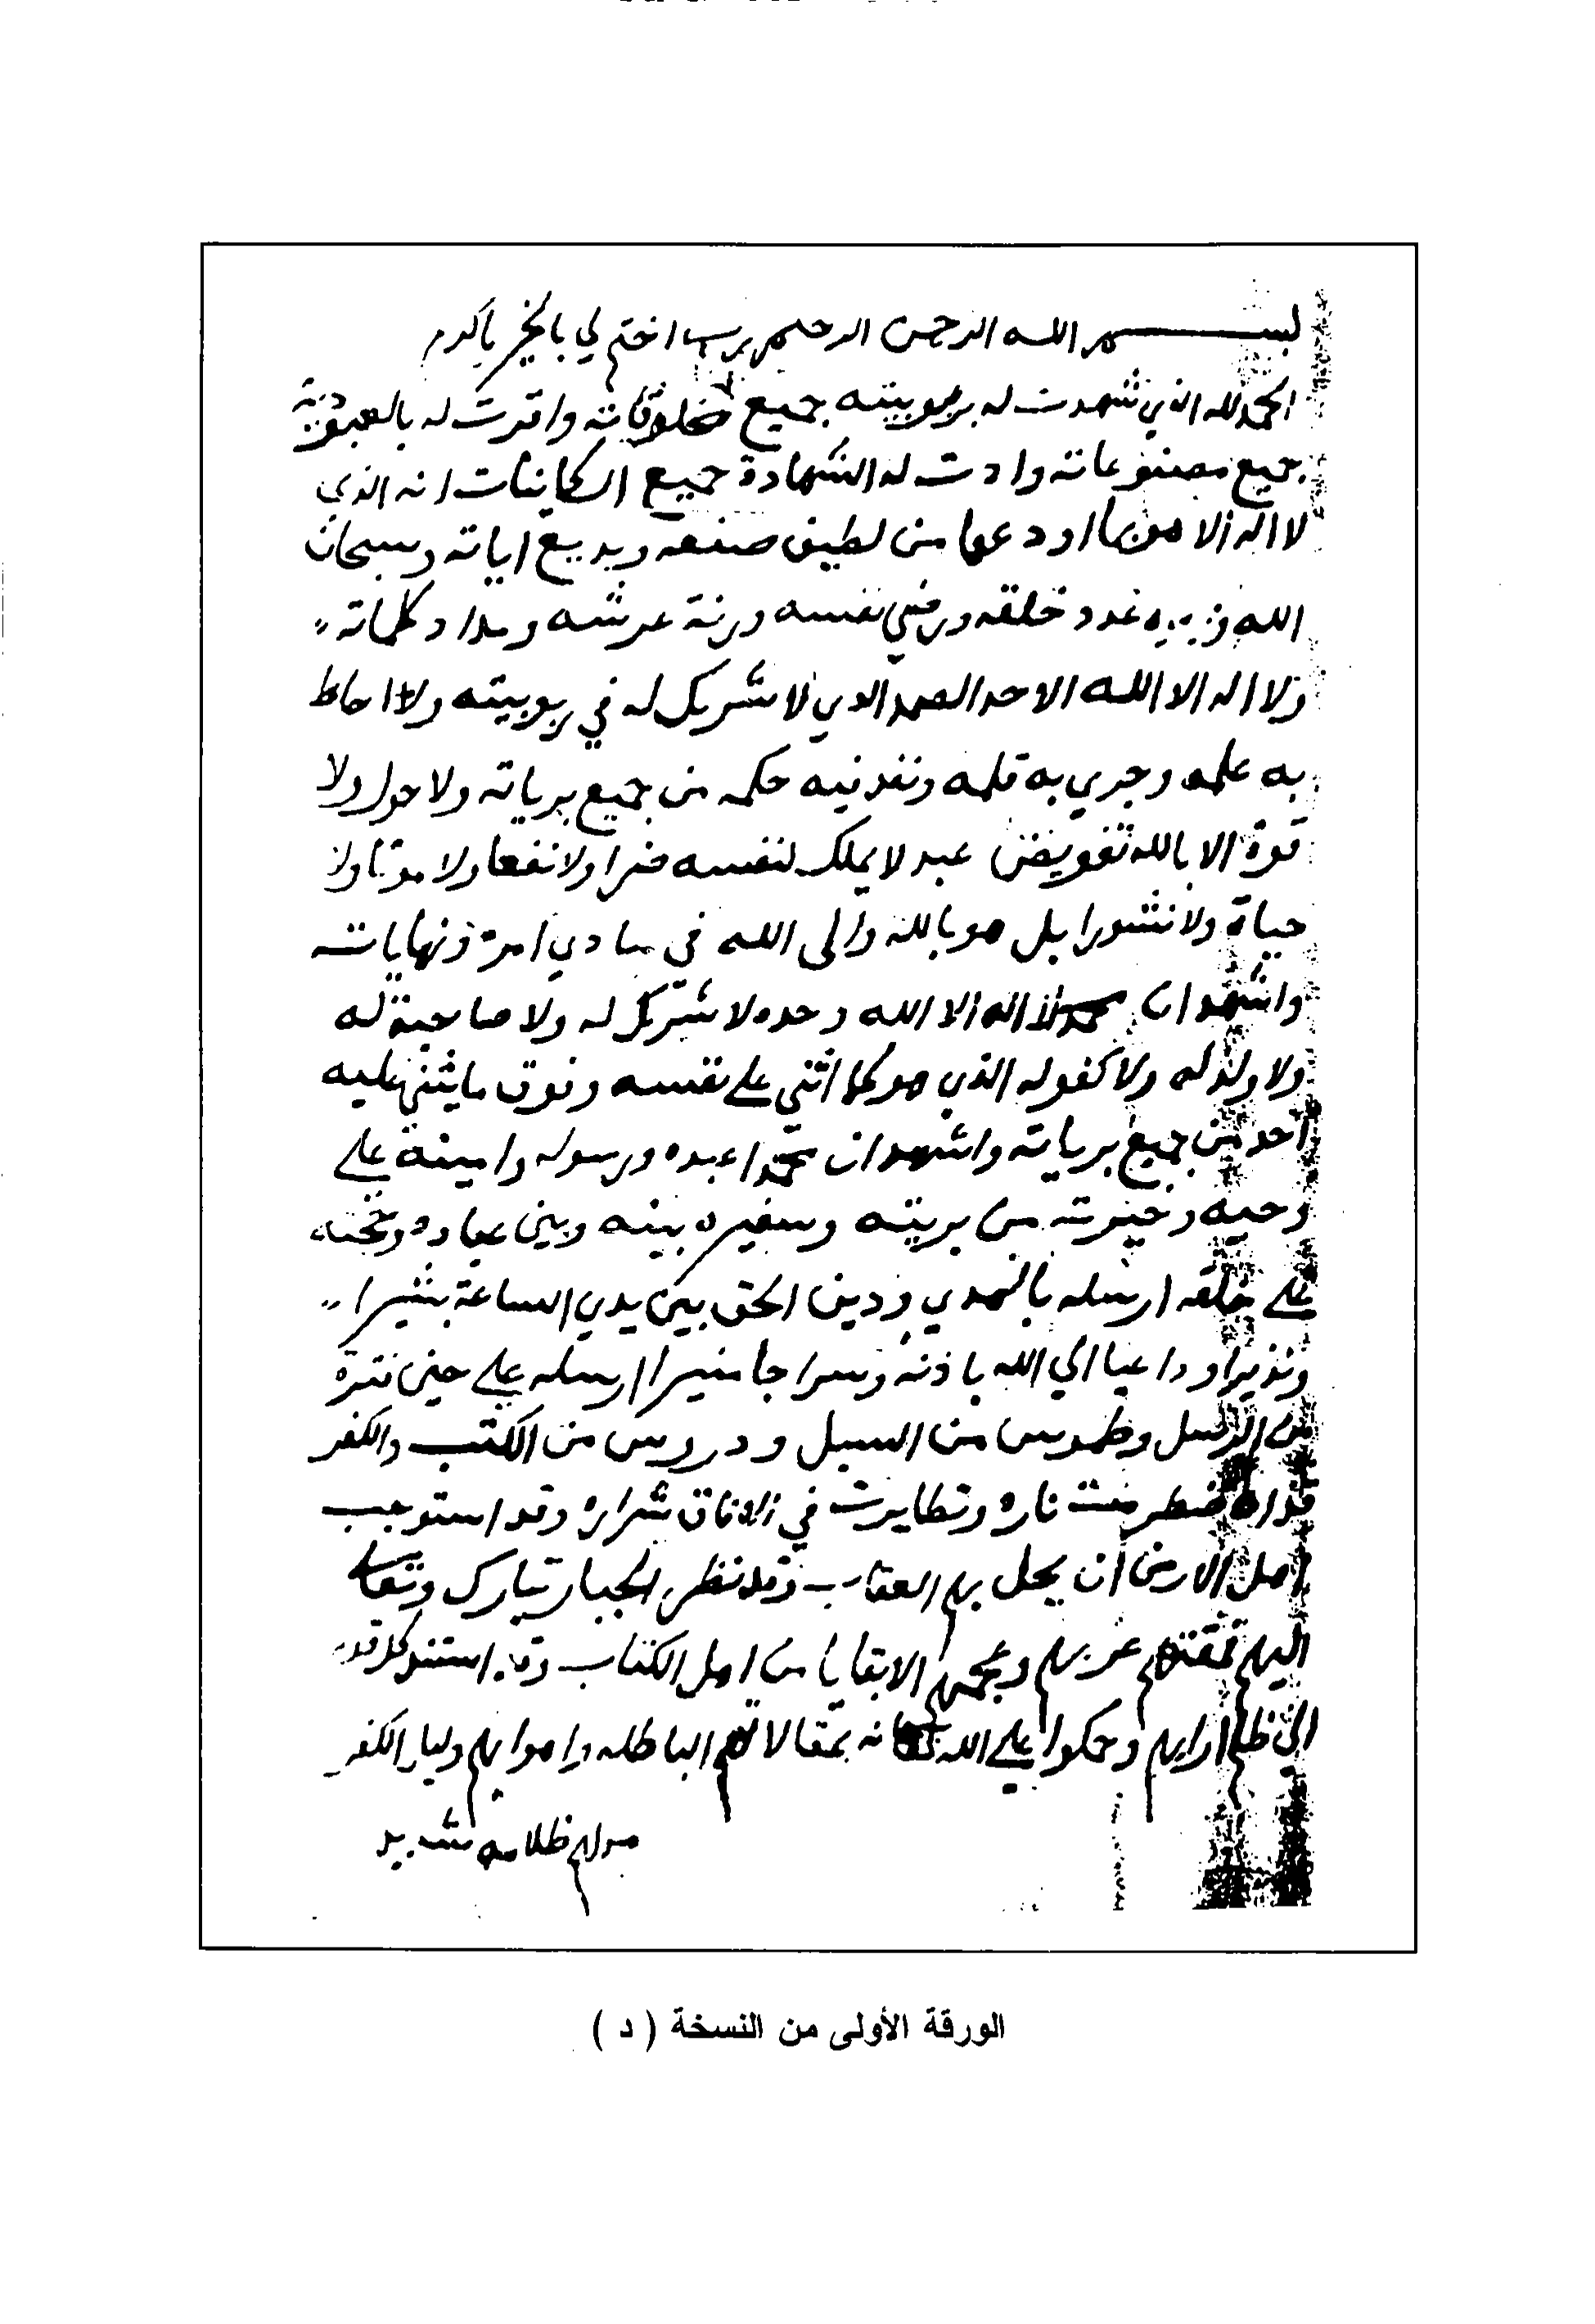 بسم الله الرحمن الرحيم رب اختم لي بالخير يا كريم
الحمد لله الذي شهدت له بربوبيته جميع مخلوقاته واقرت له بالعبودية
جميع مصنوعاته وادت له الشهادة جميع الكاينات انه الذي
لا اله الا هو بما اودعها من لطيف صنعه وبديع اياته وسبحان
الله وبحمده عدد خلقه ورضي نفسه وزنة عرشه ومداد كلماته
ولا اله الا الله الاحد الصمد الذي لا شريك له في ربوبيته ولا احاط
به علمه وجري به قلمه ونفد فيه حكمه من جميع برياته ولا حول ولا
قوة الا بالله تفويض عبد لا يملك لنفسه ضرا ولا نفعا ولا موتا ولا
حياة ولا نشورا بل هو بالله والى الله في مبادي امره ونهاياته
واشهد ان لا اله الا الله وحده لا شريك له ولا صاحبة له
ولا ولد له ولا كفو له الذي هو كما اثني علي نفسه وفوق ما يثني عليه
احد من جميع برياته واشهد ان محمدا عبده ورسوله وامينه علي
وحيه وخيرته من بريته وسفيره بينه وبين عباده وحجته
علي خلقه ارسله بالهدي ودين الحق بين يدي الساعة بشيرا
ونذيرا وداعيا الي الله باذنه وسراجا منيرا ارسله علي حين فترة
من الرسل وطموس من السبل ودروس من الكتب والكفر
قد اضطرمت ناره وتطايرت في الافاق شراره وقد استوجب
اهل الارض ان يحل بهم العقاب وقد نظر الجبار تبارك وتعالي
اليهم فمقتهم عربهم وعجمهم الا بقايا من اهل الكتاب وقد استند كل قوم
الي ظلم ارايهم وحكموا علي الله سبحانه بمقالاتهم الباطله واهوايهم وليل الكفر
مدلهم ظلامه شديد
الورقة الأولى من النسخة ( د )